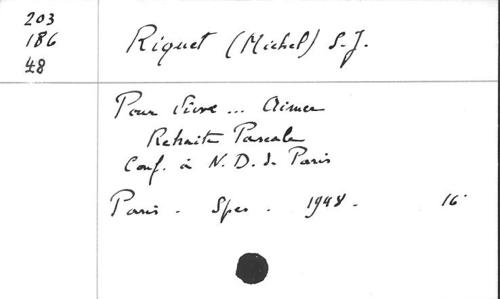 203
186
48
Riquet (Michel) S.J.
Pour vivre ... Aimer
Retraite Pascale
Conf. à N.D. de Paris
Paris - Spes - 1948 - 16°